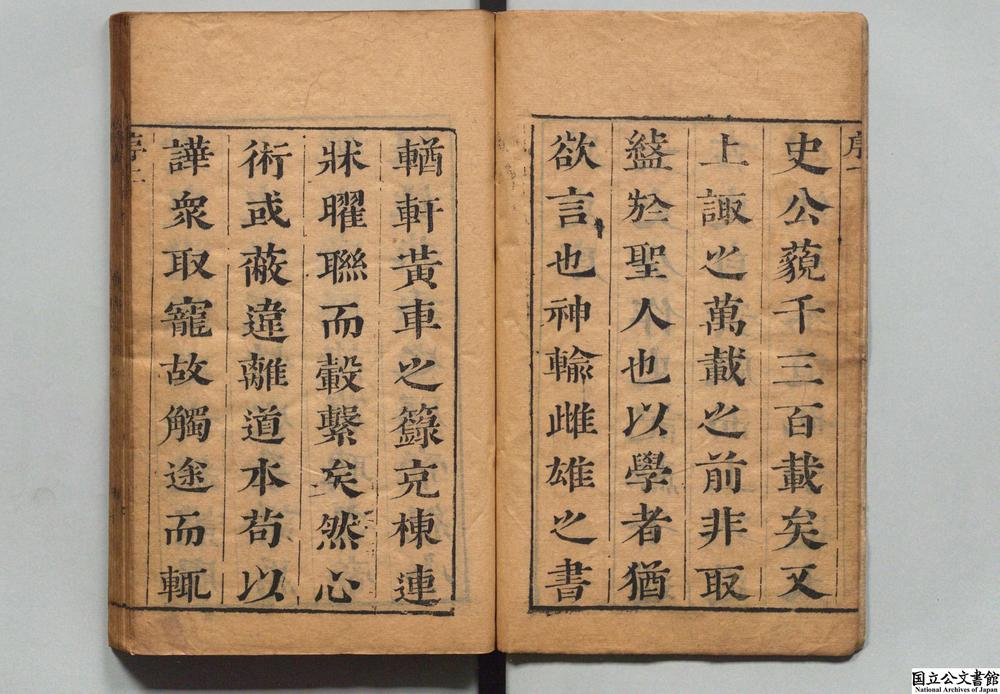 史公藐千三百載矣又
上諏之萬載之前非取
盭於聖人也以學者猶
欲言也神輸雌雄之書
序一
輶軒黃車之籙充棟連
牀曜聯而轂繫矣然心
術或蔽違離道本苟以
譁衆取寵故觸途而輒
序二
国立公文書館
National Archives of Japan